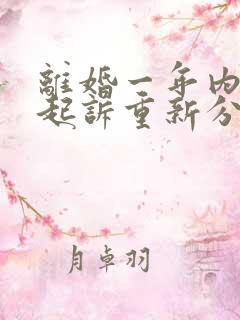 離婚一年内
起訴重新分
月卓羽